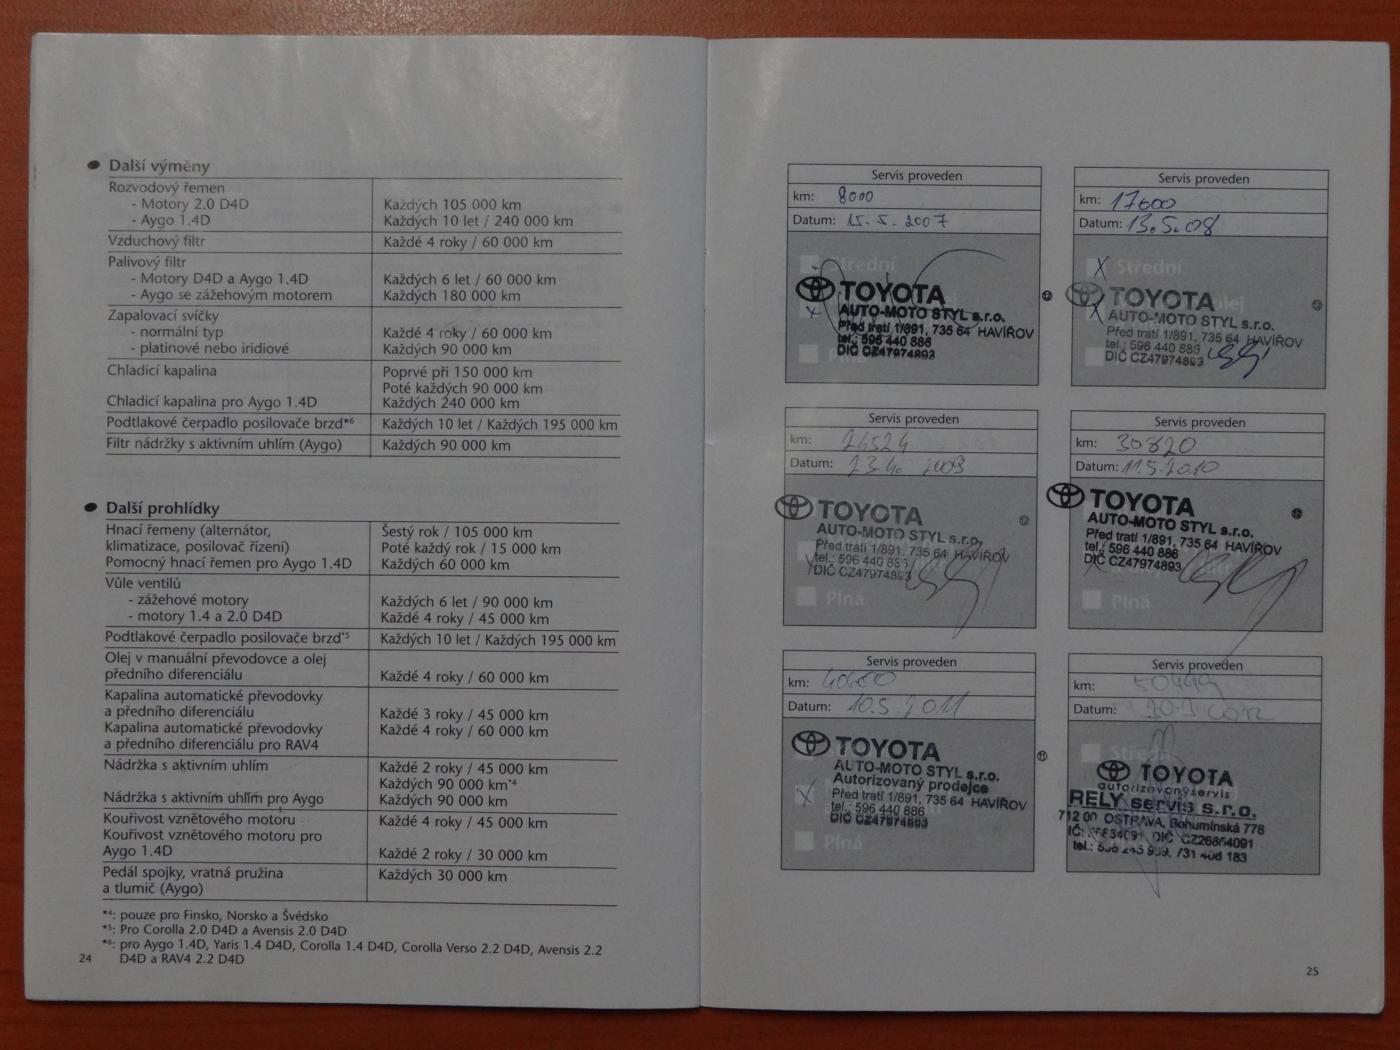 Další výměny
Rozvodový řemen
- Motory 2.0 D4D Každých 105 000 km
- Aygo 1.4D Každých 10 let / 240 000 km
Vzduchový filtr Každé 4 roky / 60 000 km
Palivový filtr
- Motory D4D a Aygo 1.4D Každých 6 let / 60 000 km
- Aygo se zážehovým motorem Každých 180 000 km
Zapalovací svíčky
- normální typ Každé 4 roky / 60 000 km
- platinové nebo iridiové Každých 90 000 km
Chladicí kapalina Poprvé při 150 000 km
Poté každých 90 000 km
Chladicí kapalina pro Aygo 1.4D Každých 240 000 km
Podtlakové čerpadlo posilovače brzd*6 Každých 10 let / Každých 195 000 km
Filtr nádržky s aktivním uhlím (Aygo) Každých 90 000 km
Další prohlídky
Hnací řemeny (alternátor, Šestý rok / 105 000 km
klimatizace, posilovač řízení) Poté každý rok / 15 000 km
Pomocný hnací řemen pro Aygo 1.4D Každých 60 000 km
Vůle ventilů
- zážehové motory Každých 6 let / 90 000 km
- motory 1.4 a 2.0 D4D Každé 4 roky / 45 000 km
Podtlakové čerpadlo posilovače brzd*5 Každých 10 let / Každých 195 000 km
Olej v manuální převodovce a olej
předního diferenciálu Každé 4 roky / 60 000 km
Kapalina automatické převodovky
a předního diferenciálu Každé 3 roky / 45 000 km
Kapalina automatické převodovky Každé 4 roky / 60 000 km
a předního diferenciálu pro RAV4
Nádržka s aktivním uhlím Každé 2 roky / 45 000 km
Každých 90 000 km*4
Nádržka s aktivním uhlím pro Aygo Každých 90 000 km
Kouřivost vznětového motoru Každé 4 roky / 45 000 km
Kouřivost vznětového motoru pro
Aygo 1.4D Každé 2 roky / 30 000 km
Pedál spojky, vratná pružina Každých 30 000 km
a tlumič (Aygo)
*4: pouze pro Finsko, Norsko a Švédsko
*5: Pro Corolla 2.0 D4D a Avensis 2.0 D4D
*6: pro Aygo 1.4D, Yaris 1.4 D4D, Corolla 1.4 D4D, Corolla Verso 2.2 D4D, Avensis 2.2
D4D a RAV4 2.2 D4D
24
Servis proveden
km: 8000
Datum: 15.5.2007
Střední
TOYOTA
AUTO-MOTO STYL s.r.o.
Před tratí 1/891, 735 64 HAVÍŘOV
tel.: 596 440 886
DIČ CZ47974893
Servis proveden
km: 17600
Datum: 13.5.08
Střední
TOYOTA
olej
AUTO-MOTO STYL s.r.o.
Před tratí 1/891, 735 64 HAVÍŘOV
tel.: 596 440 886
DIČ CZ47974893
Servis proveden
km: 24524
Datum: 23.4. 2009
TOYOTA
AUTO-MOTO STYL s.r.o.
Před tratí 1/891, 735 64 HAVÍŘOV
tel.: 596 440 886
DIČ CZ47974893
Plná
Servis proveden
km: 30820
Datum: 11.5.2010
TOYOTA
AUTO-MOTO STYL s.r.o.
Před tratí 1/891, 735 64 HAVÍŘOV
tel.: 596 440 886
DIČ CZ47974893
Plná
Servis proveden
km:
Datum: 10.5.2011
TOYOTA
AUTO-MOTO STYL s.r.o.
Autorizovaný prodejce
Před tratí 1/891, 735 64 HAVÍŘOV
tel.: 596 440 886
DIČ CZ47974893
Plná
Servis proveden
km:
Datum:
Střední
TOYOTA
autorizovaný servis
RELY servis s.r.o.
712 00 OSTRAVA, Bohumínská 778
DIČ CZ26854091
731 408 183
25